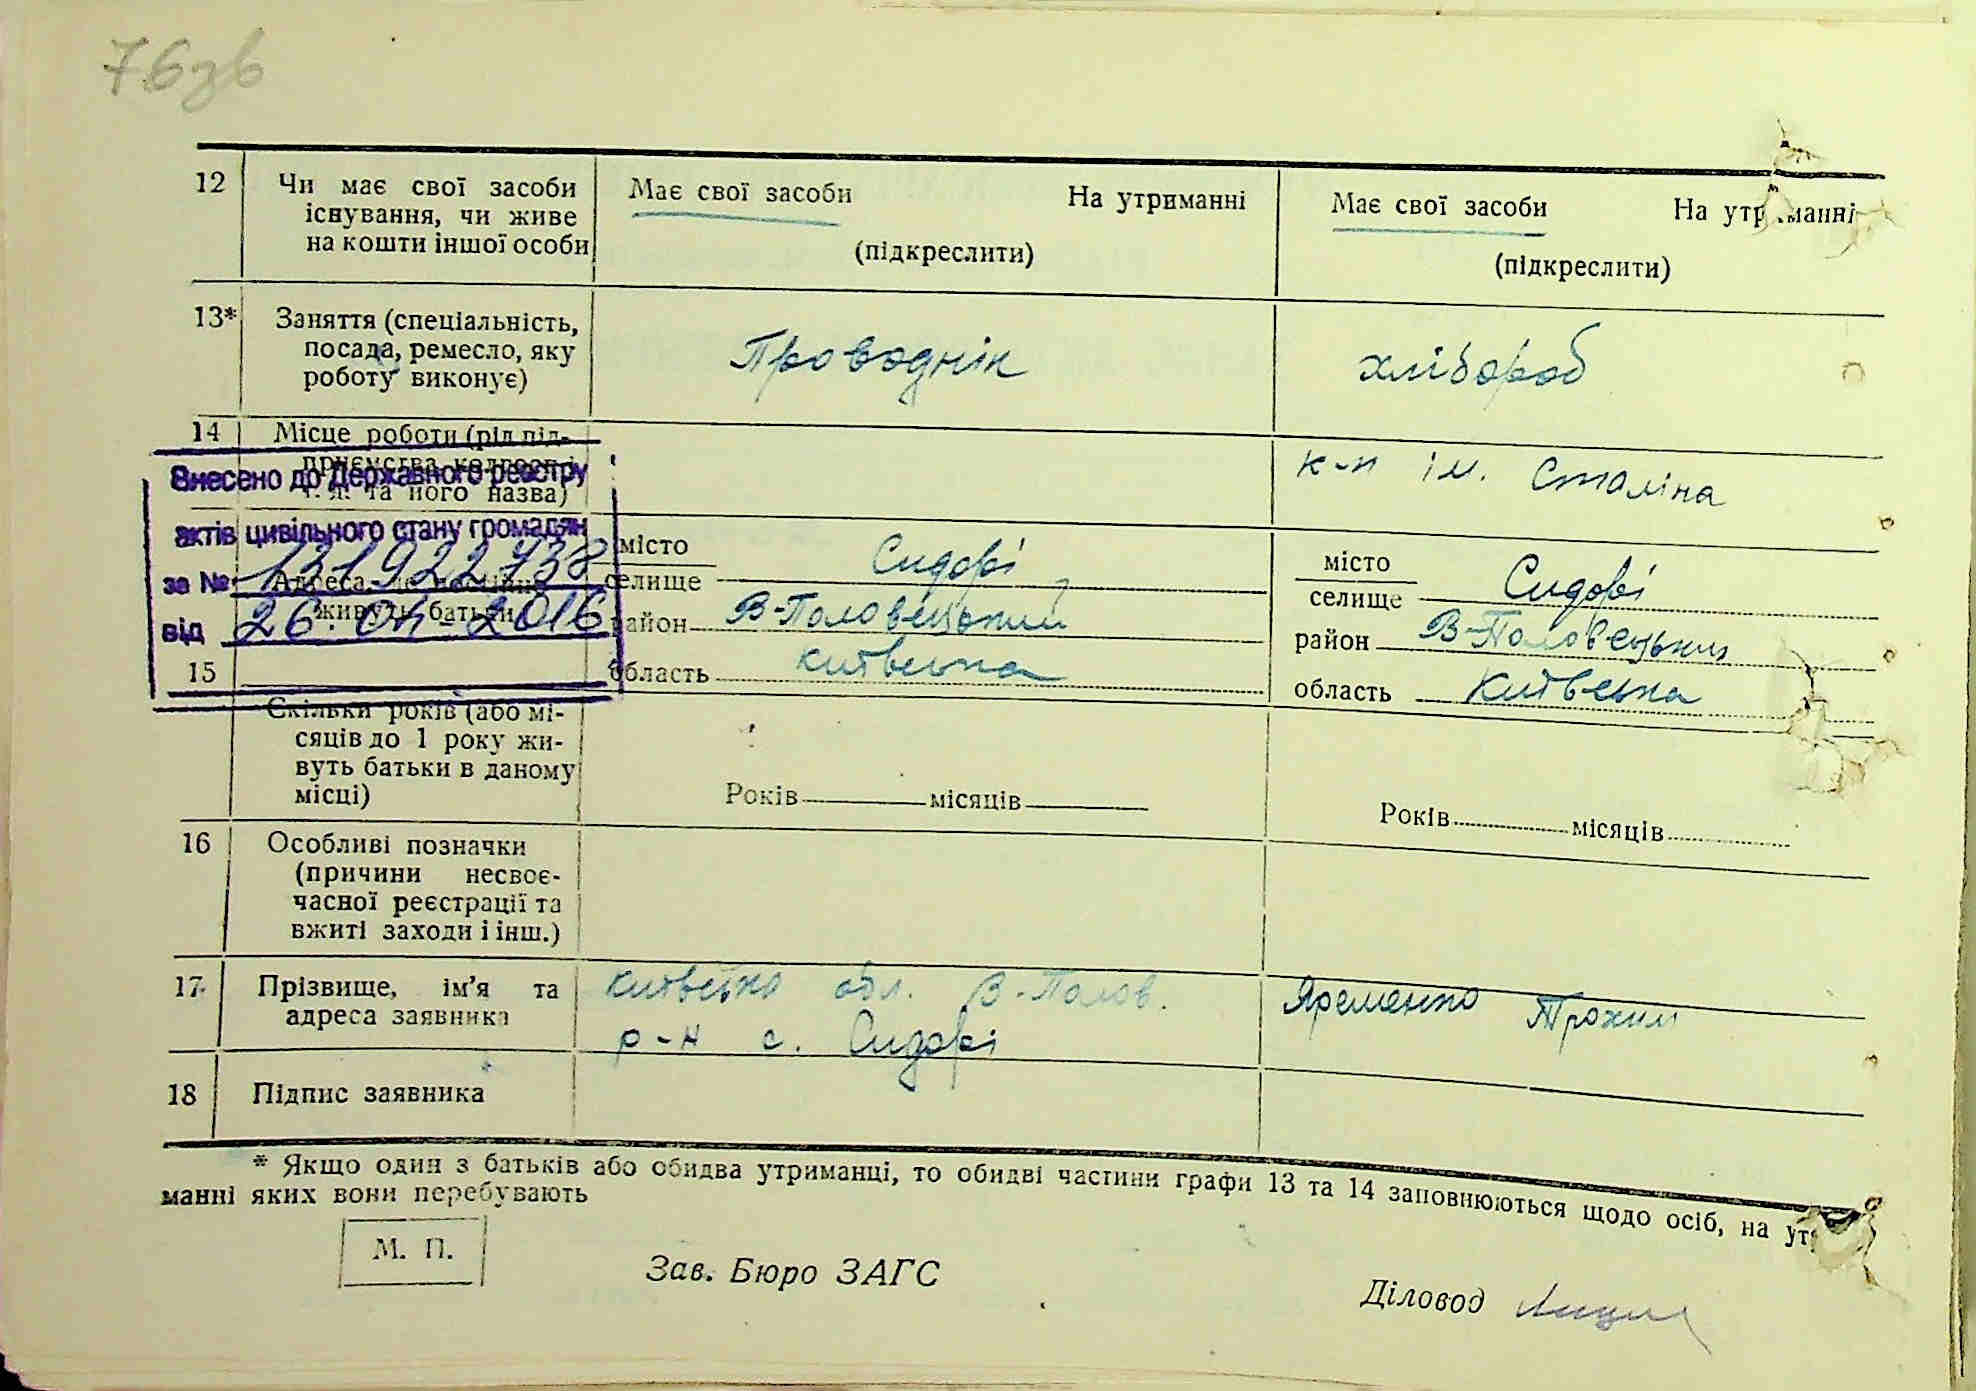 76зв
12 Чи має свої засоби існування, чи живе на кошти іншої особи
Має свої засоби На утриманні
(підкреслити)
Має свої засоби На утриманні
(підкреслити)
13* Заняття (спеціальність, посада, ремесло, яку роботу виконує)
Проводнік
хлібороб
14 Місце роботи (рід під-
приємства, колгосп і
т. я. та його назва)
к-п ім. Сталіна
Внесено до Державного реєстру
актів цивільного стану громадян
за № 131922738
від 26.04.2016
15
Адреса, де постійно
живуть батьки
місто
селище Сидорі
район В-Половецький
область Київська
місто
селище Сидорі
район В-Половецький
область Київська
Скільки років (або мі-
сяців до 1 року жи-
вуть батьки в даному
місці)
Років місяців
Років місяців
16 Особливі позначки
(причини несвоє-
часної реєстрації та
вжиті заходи і інш.)
17 Прізвище, ім'я та
адреса заявника
Київська обл. В-Полов.
р-н с. Сидорі
Яременко Трохим
18 Підпис заявника
* Якщо один з батьків або обидва утриманці, то обидві частини графи 13 та 14 заповнюються щодо осіб, на ут
манні яких вони перебувають
М. П.
Зав. Бюро ЗАГС
Діловод